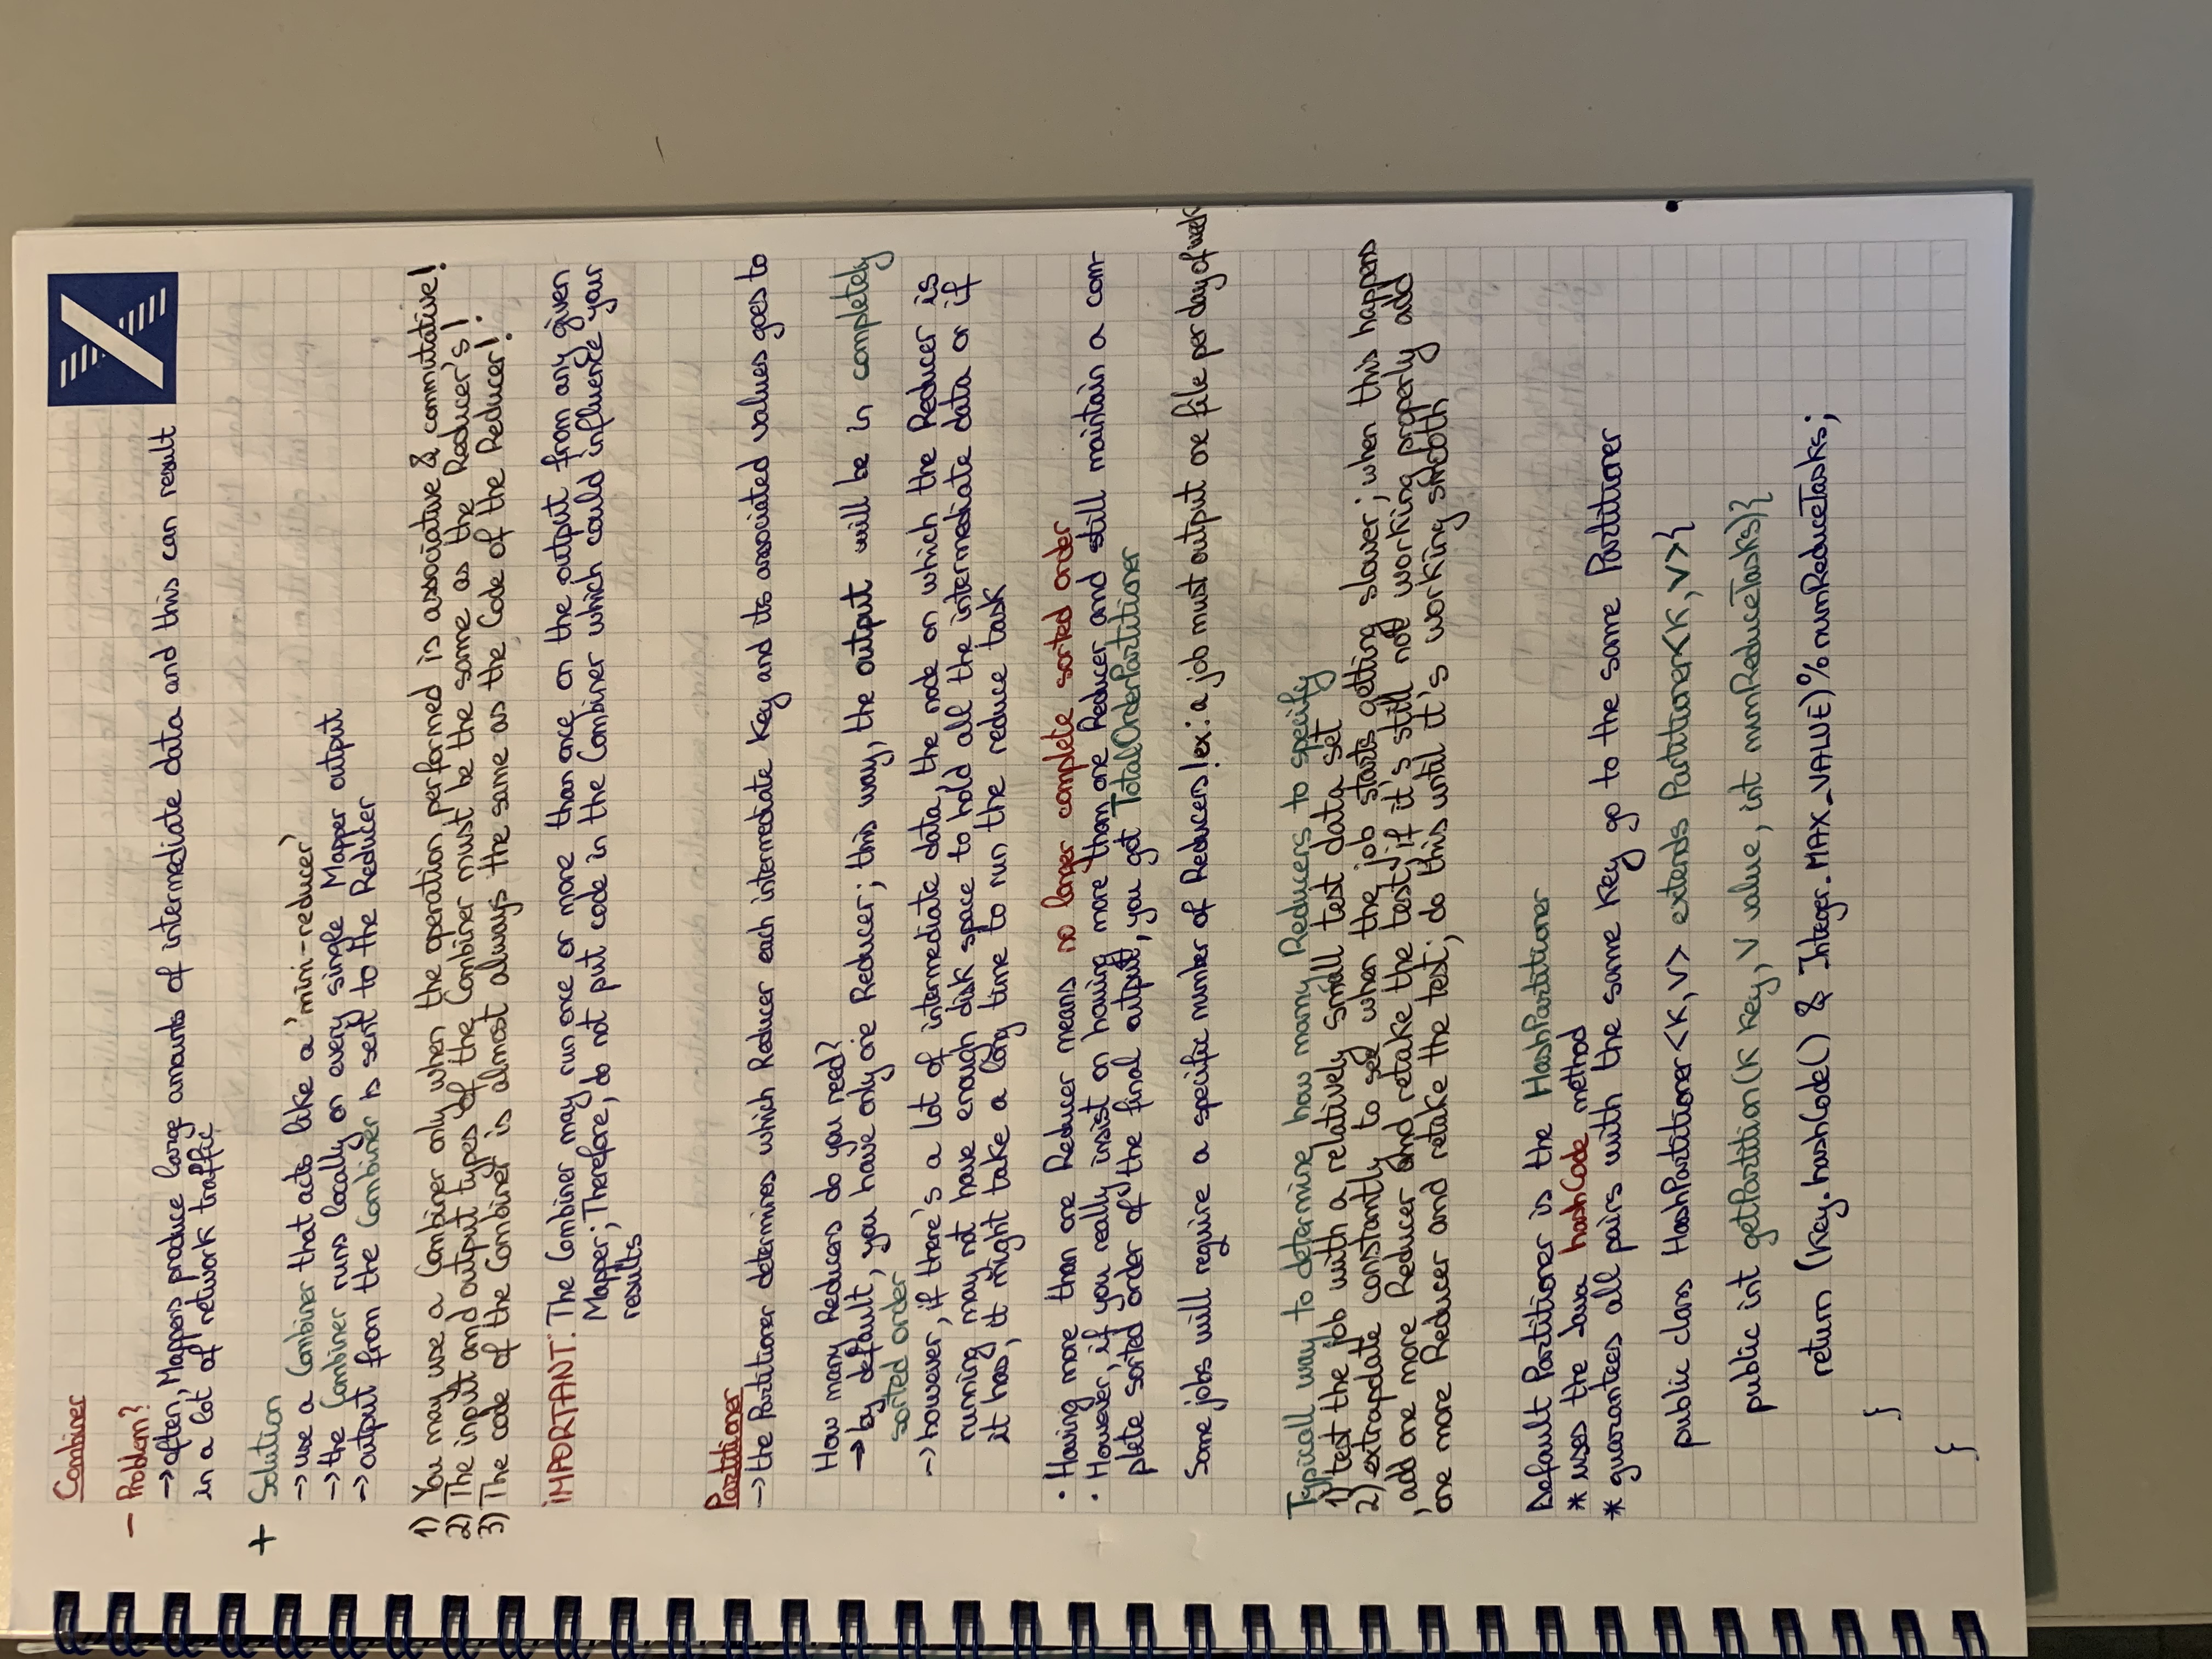 Combiner
- Problem?
→ often, Mappers produce large amounts of intermediate data and this can result
in a lot of network traffic
+ Solution
→ use a Combiner that acts like a 'mini-reducer'
→ the Combiner runs locally on every single Mapper output
→ output from the Combiner is sent to the Reducer
1) You may use a Combiner only when the operation performed is associative & commutative!
2) The input and output types of the Combiner must be the same as the Reducer's!
3) The code of the Combiner is almost always the same as the Code of the Reducer!
IMPORTANT: The Combiner may run once or more than once on the output from any given
Mapper; Therefore, do not put code in the Combiner which could influence your
results
Partitioner
→ the Partitioner determines which Reducer each intermediate key and its associated values goes to
How many Reducers do you need?
→ by default, you have only one Reducer; this way, the output will be in completely
sorted order
→ however, if there's a lot of intermediate data, the node on which the Reducer is
running may not have enough disk space to hold all the intermediate data or if
it has, it might take a long time to run the reduce task
· Having more than one Reducer means no longer complete sorted order
· However, if you really insist on having more than one Reducer and still maintain a com-
plete sorted order of the final output, you got TotalOrderPartitioner
Some jobs will require a specific number of Reducers! ex: a job must output one file per day of week
Typicall way to determine how many Reducers to specify
1) test the job with a relatively small test data set
2) extrapolate constantly to see when the job starts getting slower; when this happens
, add one more Reducer and retake the test; if it's still not working properly add
one more Reducer and retake the test; do this until it's working smooth
Default Partitioner is the HashPartitioner
* uses the Java hashCode method
* guarantees all pairs with the same key go to the same Partitioner
public class HashPartitioner<K,V> extends Partitioner<K,V>{
public int getPartition(K key, V value, int numReduceTasks){
return (key.hashCode() & Integer.MAX_VALUE)%numReduceTasks;
}
}